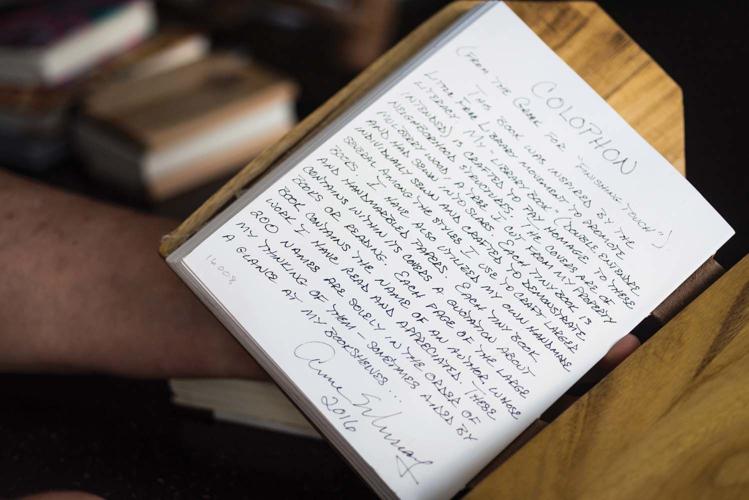 COLOPHON
(FROM THE GREEK FOR "FINISHING TOUCH")
THIS BOOK WAS INSPIRED BY THE
LITTLE FREE LIBRARY MOVEMENT TO PROMOTE
LITERACY. MY LIBRARY BOOK (DOUBLE ENTENDRE
INTENDED) IS CRAFTED TO PAY HOMAGE TO THESE
NEIGHBORHOOD STRUCTURES. THE COVERS ARE OF
MULBERRY WOOD, A TREE I CUT FROM MY PROPERTY
AND HAD SAWN INTO SLABS. EACH TINY BOOK IS
INDIVIDUALLY SEWN AND CRAFTED TO DEMONSTRATE
SEVERAL AMONG THE STYLES I USE TO CRAFT LARGER
BOOKS. I HAVE ALSO UTILIZED MY OWN HANDMADE
AND HANDMARBLED PAPERS. EACH TINY BOOK
CONTAINS WITHIN ITS COVERS A QUOTATION ABOUT
BOOKS OR READING. EACH PAGE OF THE LARGE
BOOK CONTAINS THE NAME OF AN AUTHOR WHOSE
WORK I HAVE READ AND APPRECIATED. THESE
200 NAMES ARE SOLELY IN THE ORDER OF
MY THINKING OF THEM – SOMETIMES AIDED BY
A GLANCE AT MY BOOKSHELVES...
2016